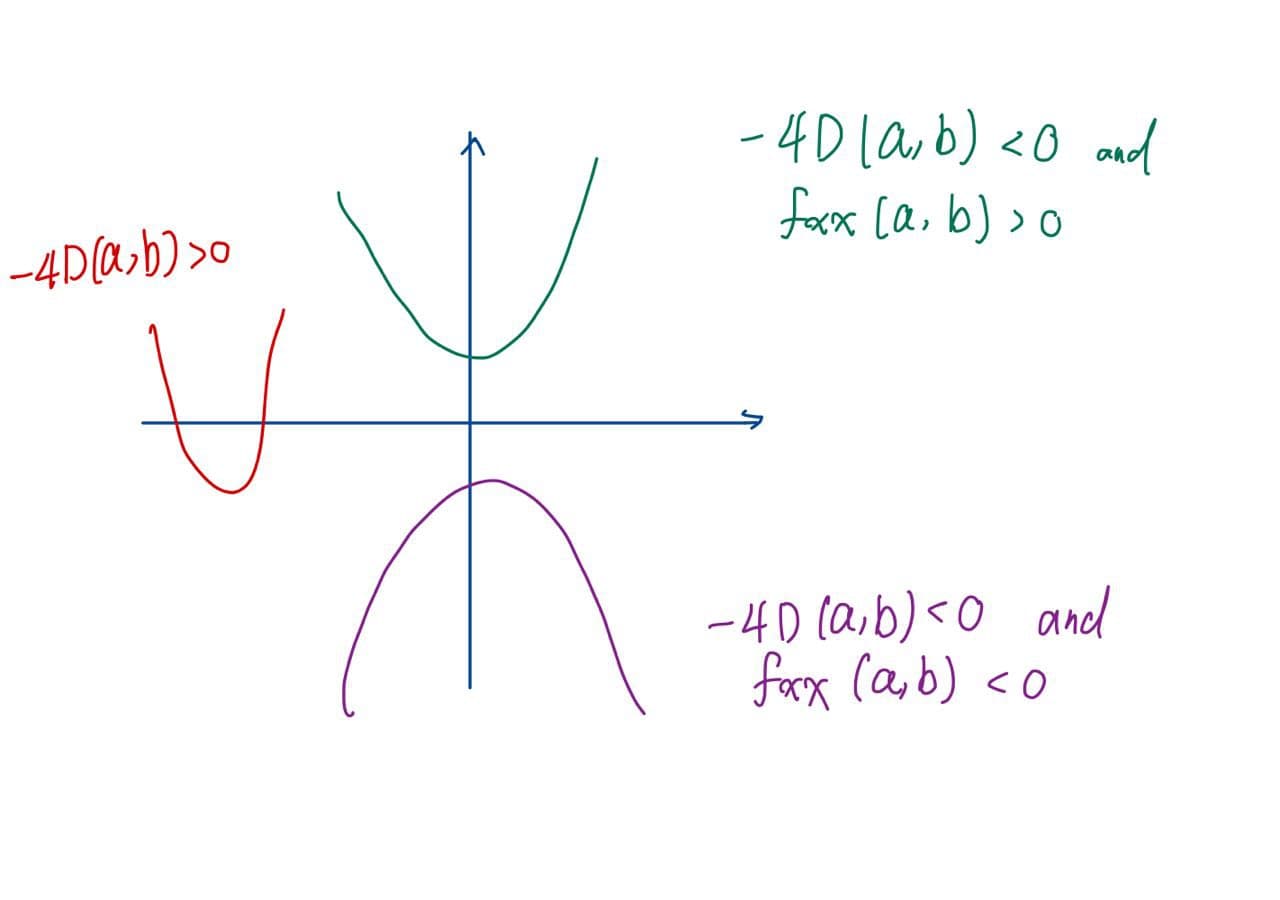 -4D(a,b) <0 and
fxx (a,b) >0
-4D(a,b) >0
-4D (a,b) <0 and
fxx (a,b) <0